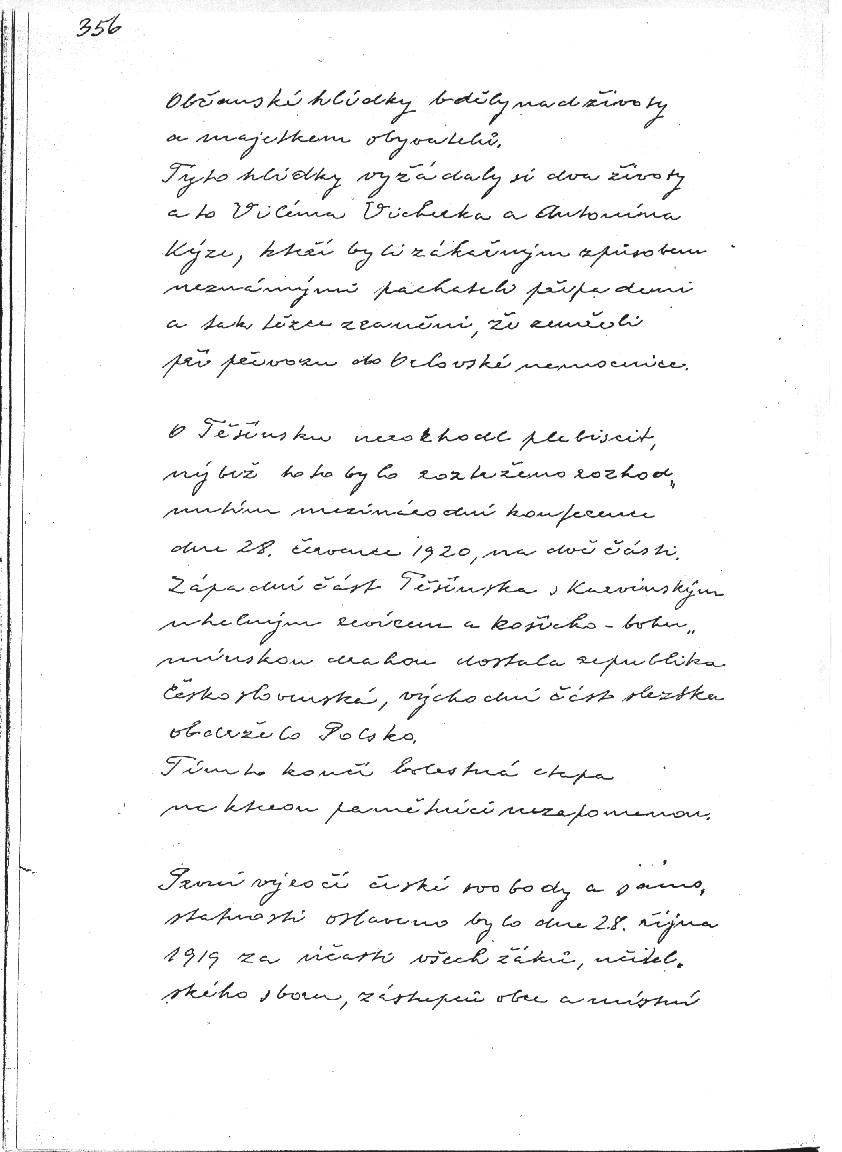 356
Občanské hlídky bděly nad životy
a majetkem obyvatelů.
Tyto hlídky vyžádaly si dva životy
a to Viléma Vicherka a Antonína
Kýze, kteří byli zákeřným způsobem
neznámými pachateli přepadeni
a tak těžce zraněni, že zemřeli
při převozu do Orlovské nemocnice.
O Těšínsku nerozhodl plebiscit,
nýbrž toto bylo roztrženo rozhod„
nutím mezinárodní konference
dne 28. července 1920, na dvě části.
Západní část Těšínska s Karvinským
uhelným revírem a košicko - bohu„
mínskou drahou dostala republika
Československá, východní část slezska
obdrželo Polsko.
Tímto končí bolestná etapa
na kterou pamětníci nezapomenou.
První výročí české svobody a samo„
statnosti oslaveno bylo dne 28. října
1919 za účasti všech žáků, učitel„
ského sboru, zástupců obce a místní